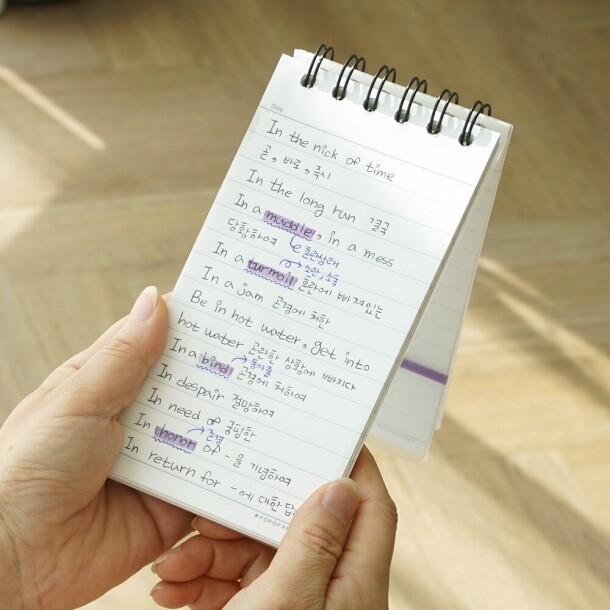 Date.
In the nick of time
곧, 바로, 즉시
In the long run 결국
In a muddle, in a mess
당황하여 혼란상태
In a turmoil 혼란에 빠져있는
소란, 소동
In a jam 곤경에 처한
Be in hot water, get into
hot water 곤란한 상황에 빠지다
In a bind 곤경에 처하여
In despair 절망하여
In need of 궁핍한
In honor of -을 기념하여
In return for -에 대한 답